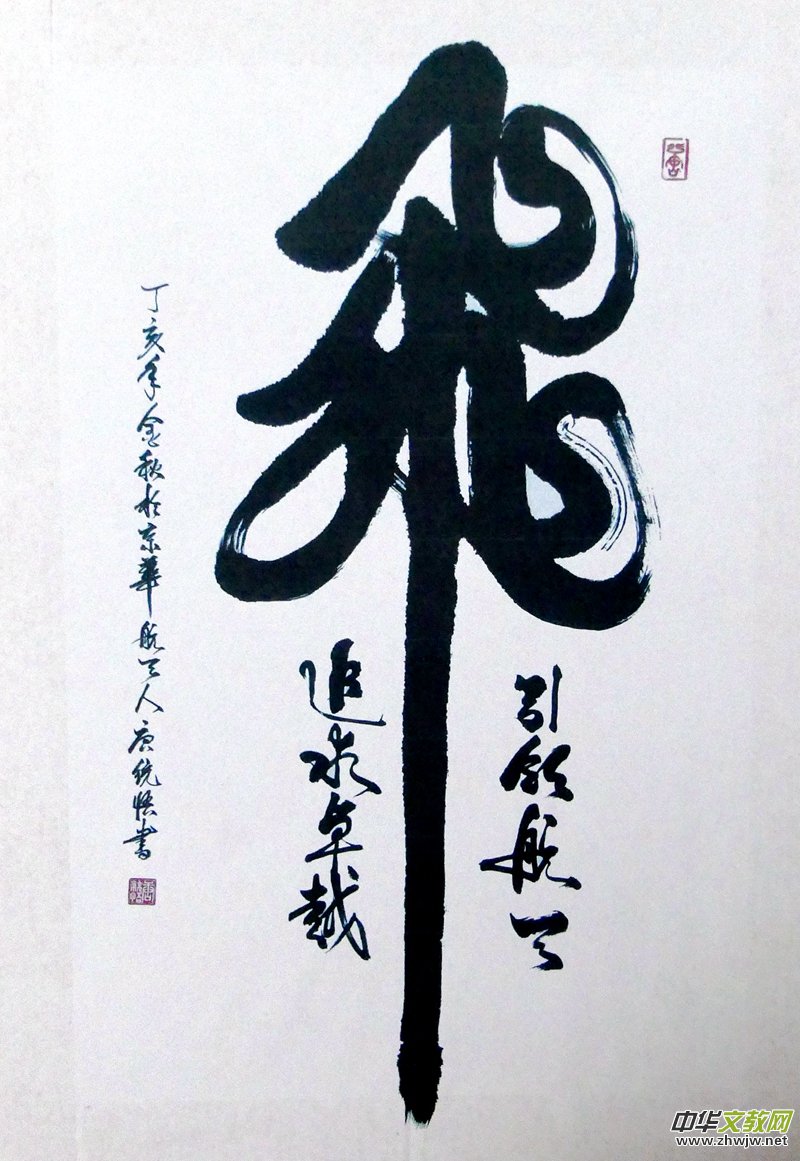 飛
引領航天
追求卓越
丁亥年金秋於京華航天人唐統悟書
中华文教网
www.zhwjw.net